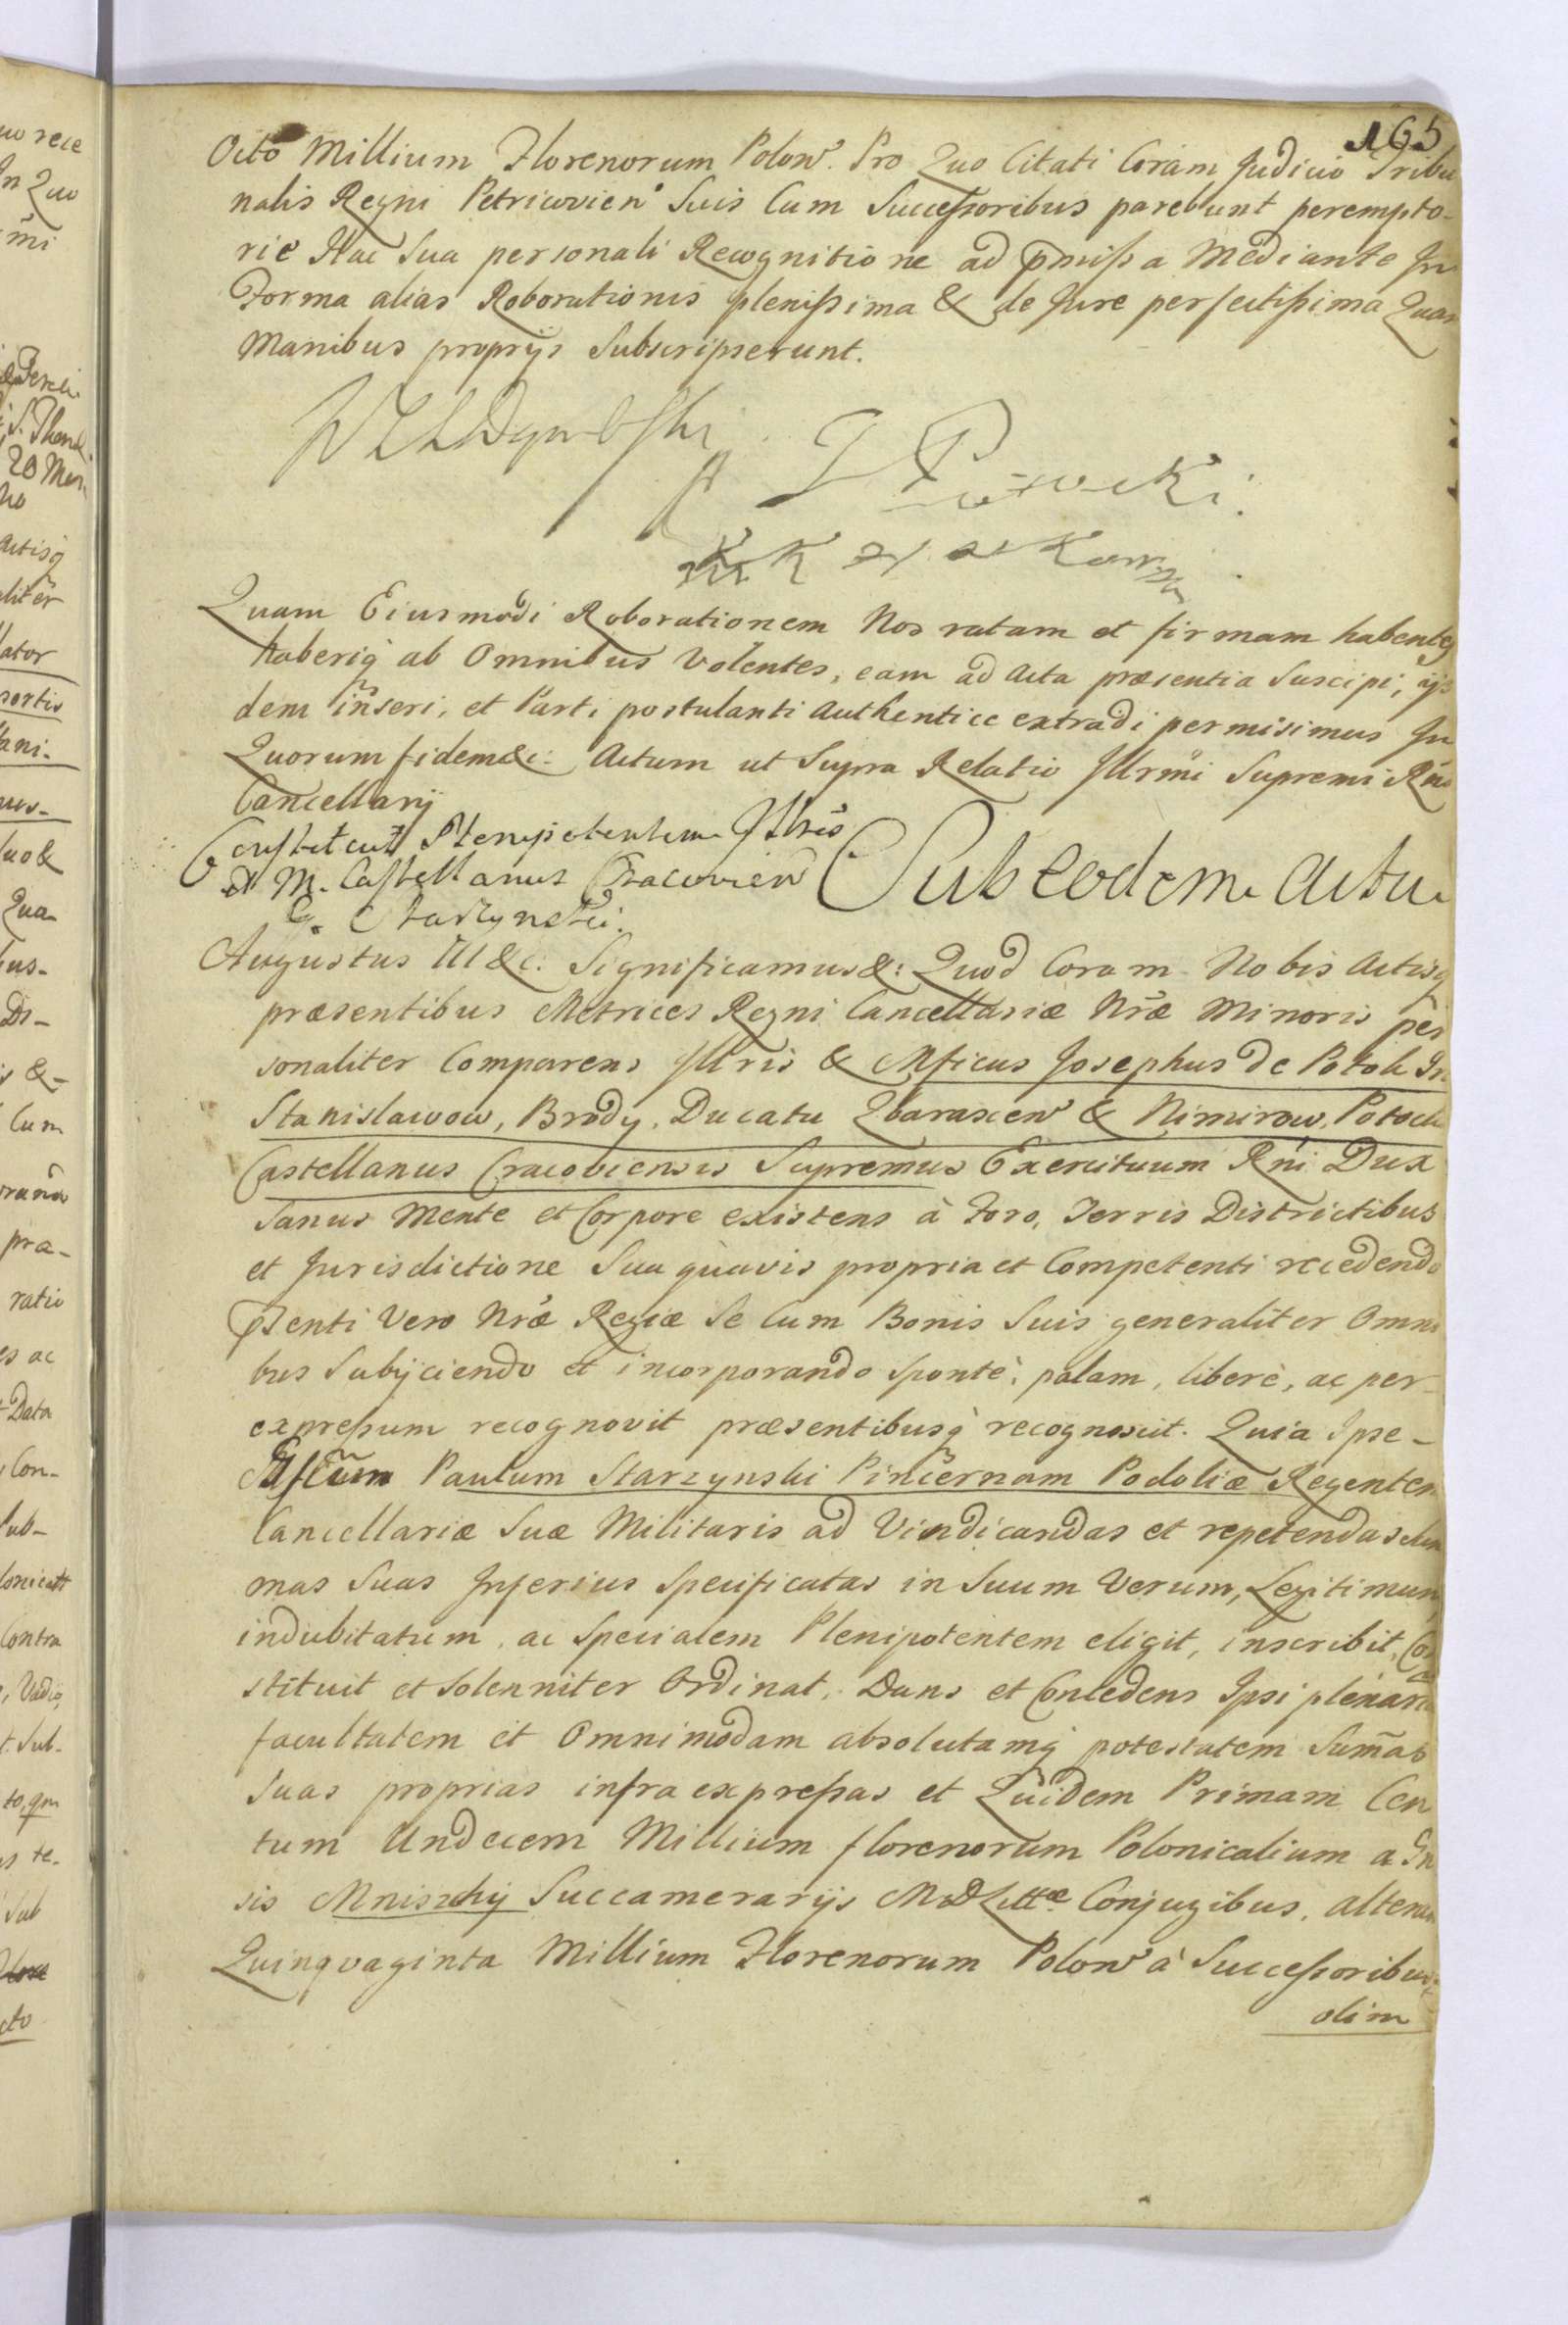 165
Octo Millium Florenorum Polon̄. Pro Quo Citati Coram Judicio Tribu
nalis Regni Petricovien̄ Suis Cum Successoribus parebunt perempto-
rie Hac Sua personali Recognitione ad p̄missa Mediante In
Forma alias Roborationis plenissima & de Jure perfectissima Quam
Manibus proprijs Subscripserunt.
J P
Quam Eiusmodi Roborationem Nos ratam et firmam habentes
haberiq̀ ab Omnibus Volentes, eam ad Acta præsentia Suscipi, ijs
dem inseri, et Parti postulanti Authentice extradi permisimus In
Quorum fidem &c: Actum ut Supra Relatio Jllrm̄i Supremi R̄ni
Cancellarij
Constituit Plenipotentem Jllris
& M. Castellanus Cracovien̄
G. Starzynski.
Sub eodem Actu
Augustus III &c. Significamus &: Quod Coram Nobis Actisq̀
præsentibus Metrices Regni Cancellariæ Nr̄æ Minoris per
sonaliter Comparens Jllris & Mficus Josephus de Potok In
Stanislawow, Brody, Ducatu Zbarascen̄ & Nimirow, Potocki
Castellanus Cracoviensis Supremus Exercituum R̄ni Dux
Sanus Mente et Corpore existens à Foro, Terris Districtibus
et Jurisdictione Sua quavis propria et Competenti recedendo
p̄senti Vero Nr̄æ Regiæ Se Cum Bonis Suis generaliter Omni
bus Subijciendo et incorporando Spontè, palam, liberè, ac per
expressum recognovit præsentibusq̀ recognoscit. Quia Ipse-
Paulum Starzynski Pincernam Podoliæ Regentem
Cancellariæ Suæ Militaris ad Vindicandas et repetendas Sum
mas Suas Inferius Specificatas in Suum Verum, Legitimum,
indubitatum, ac Specialem Plenipotentem eligit, inscribit, Con
stituit et Solenniter Ordinat, Dans et Concedens Ipsi plenariam
facultatem et Omnimodam absolutamq̀ potestatem Sum̄as
Suas proprias infra expressas et Quidem Primam Cen
tum Undecem Millium florenorum Polonicalium a Gn
sis Mniszchij Succamerarijs M D Littæ Conjugibus, alteram
Quinqvaginta Millium Florenorum Polon̄ à Successoribus
olim